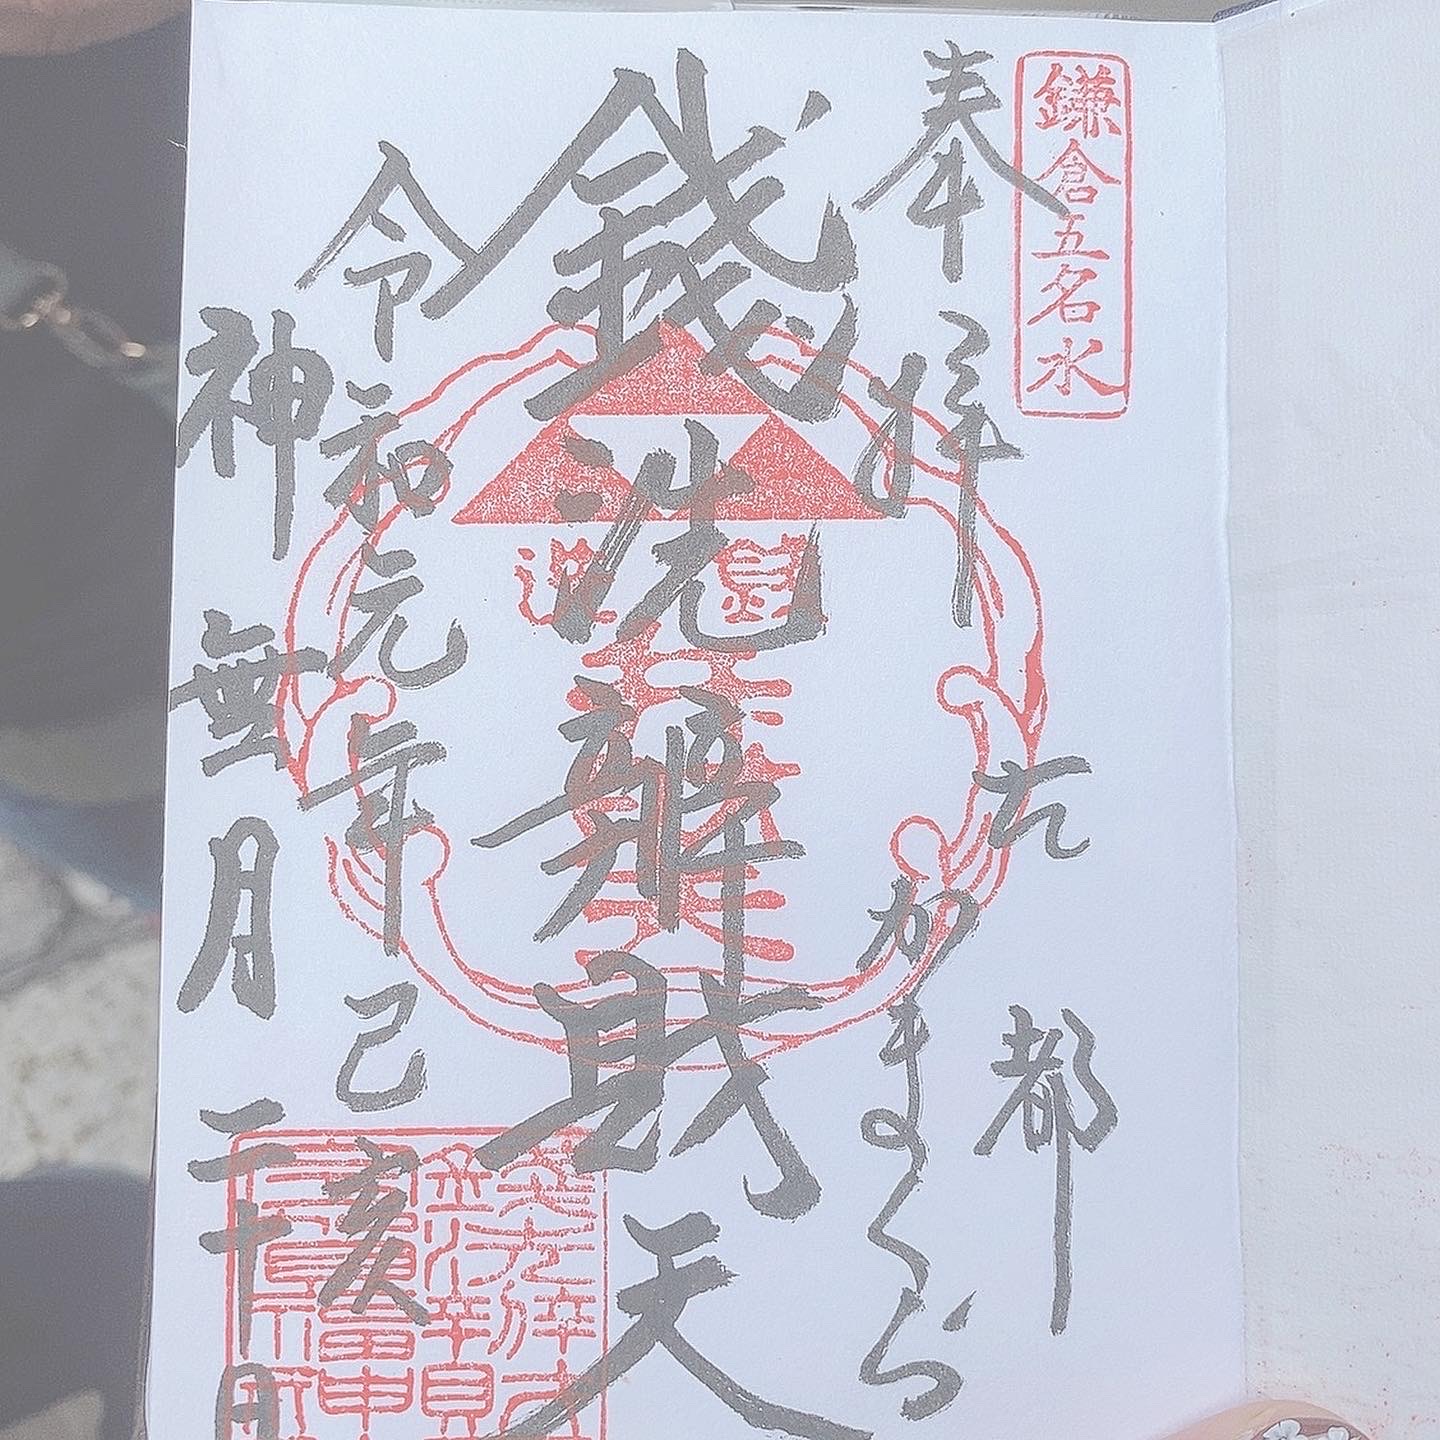 鎌倉五名水
奉拝
古都
かまくら
銭洗辨財天
令和元年己亥
神無月二十日